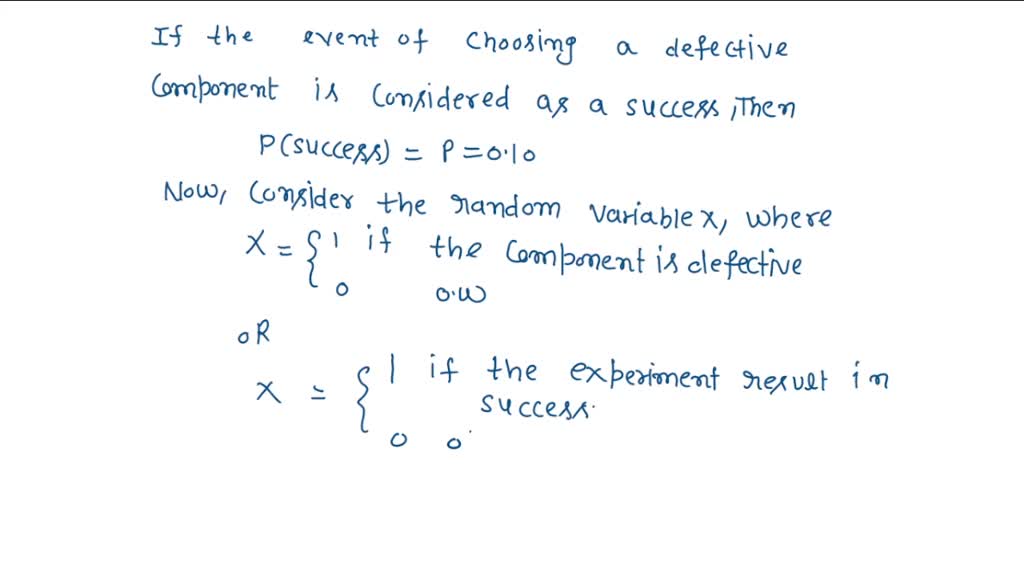 If the event of choosing a defective
Component is Considered as a success, Then
P(success) = P = 0.10
Now, Consider the random variable x, where
X = { 1 if the Component is defective
0 o.w
oR
X = { 1 if the experiment result in
success.
0 o.